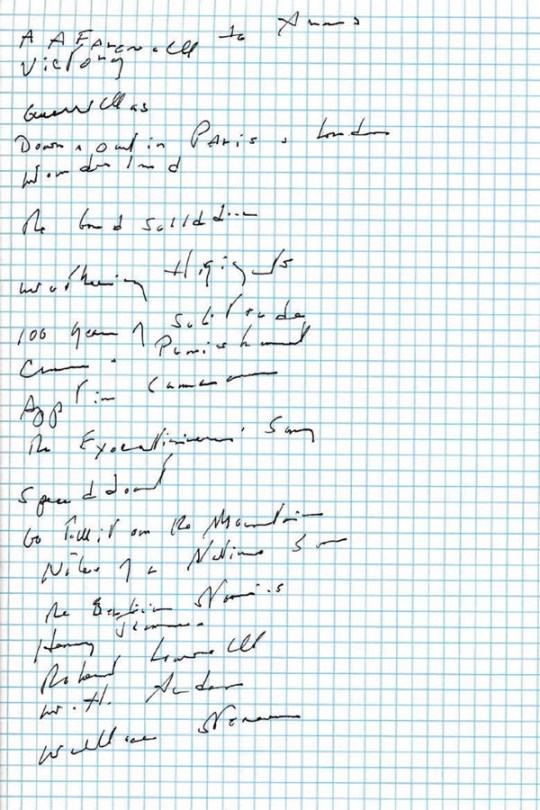 A A Farewell to Arms
Victory
Guerrillas
Down & Out in Paris & London
Wonderland
The Good Soldier
Wuthering Heights
100 Years of Solitude
Crime & Punishment
Appt in Samarra
The Executioner's Song
Speedboat
Go Tell it on the Mountain
Notes of a Native Son
The Berlin Stories
Henry James
Robert Lowell
W.H. Auden
Wallace Stevens